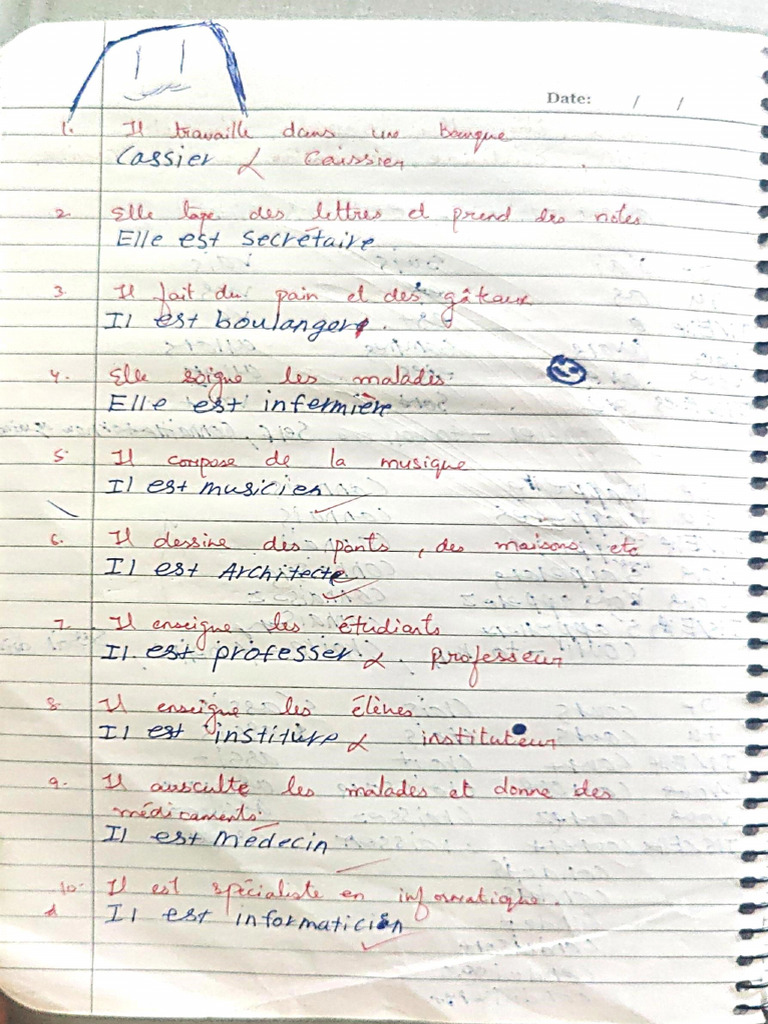 Date: / /
1. Il travaille dans une banque
Cassier Caissier
2. Elle tape des lettres et prend des notes
Elle est secrétaire.
3. Il fait du pain et des gâteaux
Il est boulanger.
4. Elle soigne les malades
Elle est infermière
5. Il compose de la musique
Il est musicien
6. Il dessine des ponts, des maisons etc
Il est Architecte
7. Il enseigne les étudiants
Il est professer. Professeur
8. Il enseigne les élèves
Il est institure instituteur
9. Il ausculte les malades et donne des
médicaments.
Il est médecin
10. Il est spécialiste en informatique.
Il est informaticien